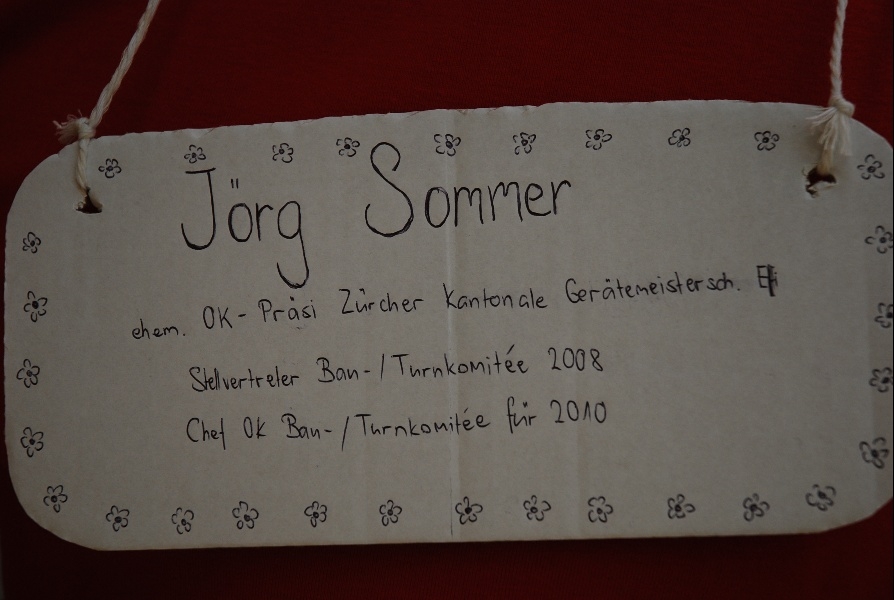 Jörg Sommer
ehem. OK-Präsi Zürcher Kantonale Gerätemeistersch.
Stellvertreter Bau-/Turnkomitée 2008
Chef OK Bau-/Turnkomitée für 2010